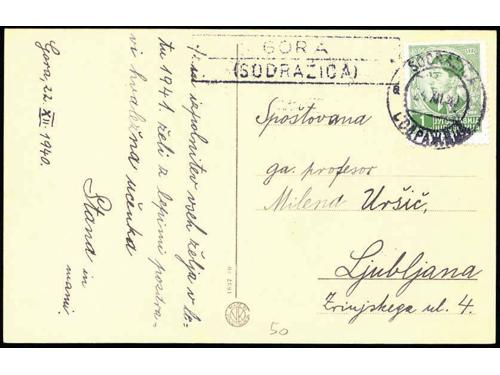 GORA
(SODRAŽICA)
SODRAŽICA
XII 40
1
Gora, 22. XII. 1940.
izpolnitev vseh želja v le-
tu 1941. želi z lepimi pozdra-
vi hvaležna učenka
Stana in
mami.
Spoštovana
ga. profesor
Milena Uršič,
Ljubljana
Zrinjskega ul. 4.
50